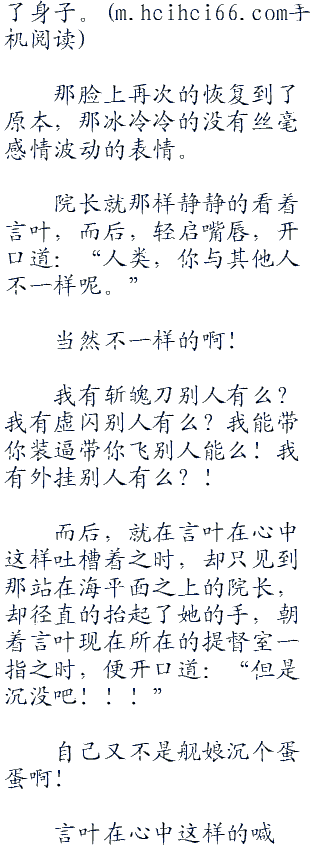 了身子。(m.hcihci66.com手
机阅读)
那脸上再次的恢复到了
原本，那冰冷冷的没有丝毫
感情波动的表情。
院长就那样静静的看着
言叶，而后，轻启嘴唇，开
口道：“人类，你与其他人
不一样呢。”
当然不一样的啊！
我有斩魄刀别人有么？
我有虚闪别人有么？我能带
你装逼带你飞别人能么！我
有外挂别人有么？！
而后，就在言叶在心中
这样吐槽着之时，却只见到
那站在海平面之上的院长，
却径直的抬起了她的手，朝
着言叶现在所在的提督室一
指之时，便开口道：“但是
沉没吧！！！”
自己又不是舰娘沉个蛋
蛋啊！
言叶在心中这样的喊